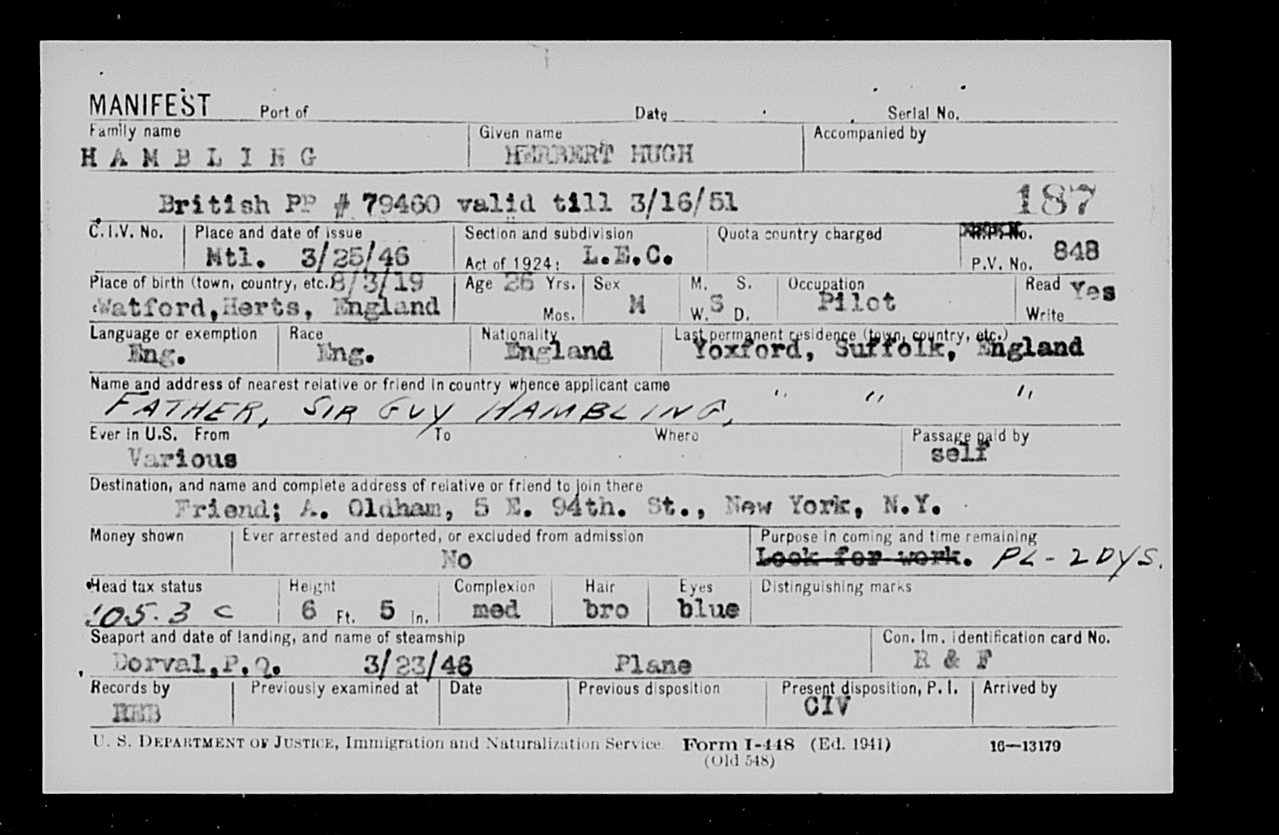 MANIFEST Port of Date Serial No.
Family name Given name Accompanied by
HAMBLING HERBERT HUGH
British PP # 79460 valid till 3/16/51 187
C.I.V. No. Place and date of issue Section and subdivision Quota country charged No.
Mtl. 3/25/46 Act of 1924: L.E.C. P.V. No. 848
Place of birth (town, country, etc.) 8/3/19 Age 26 Yrs. Sex M. S. Occupation Read Yes
Watford, Herts, England Mos. M W. S D. Pilot Write
Language or exemption Race Nationality Last permanent residence (town, country, etc.)
Eng. Eng. England Yoxford, Suffolk, England
Name and address of nearest relative or friend in country whence applicant came
FATHER, SIR GUY HAMBLING, " " "
Ever in U.S. From To Where Passage paid by
Various self
Destination, and name and complete address of relative or friend to join there
Friend; A. Oldham, 5 E. 94th. St., New York, N.Y.
Money shown Ever arrested and deported, or excluded from admission Purpose in coming and time remaining
No Look for work. PL - 2 DYS.
Head tax status Height Complexion Hair Eyes Distinguishing marks
105.3 C 6 Ft. 5 In. med bro blue
Seaport and date of landing, and name of steamship Con. Im. identification card No.
Dorval, P.Q. 3/23/46 Plane R & F
Records by Previously examined at Date Previous disposition Present disposition, P. I. Arrived by
CIV
U. S. DEPARTMENT OF JUSTICE, Immigration and Naturalization Service Form I-448 (Ed. 1941) 16—13179
(Old 548)